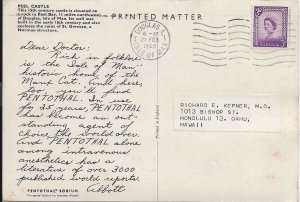 PEEL CASTLE
This 12th century castle is situated on
a rock in Peel Bay, 11 miles northwestern
of Douglas, Isle of Man. Its wall was
built in the early 16th century and also
encloses the ruins of St. German, a
Norman structure.
PRINTED MATTER
DOUGLAS
6 - PM
27 FEB
1960
ISLE OF MAN
Dear Doctor:
Rich in folklore
is the Isle of Man,
historic home of the
Manx Cat. And here,
too, you'll find
PENTOTHAL. In use
for 25 years, PENTOTHAL
has become an out-
standing agent of
choice the world over.
And PENTOTHAL alone
among intravenous
anesthetics has a
literature of over 3000
published world reports.
Abbott
PENTOTHAL® SODIUM
Printed in England
RICHARD E. KEPNER, M.D.
1013 BISHOP ST.
HONOLULU 13, OAHU,
HAWAII